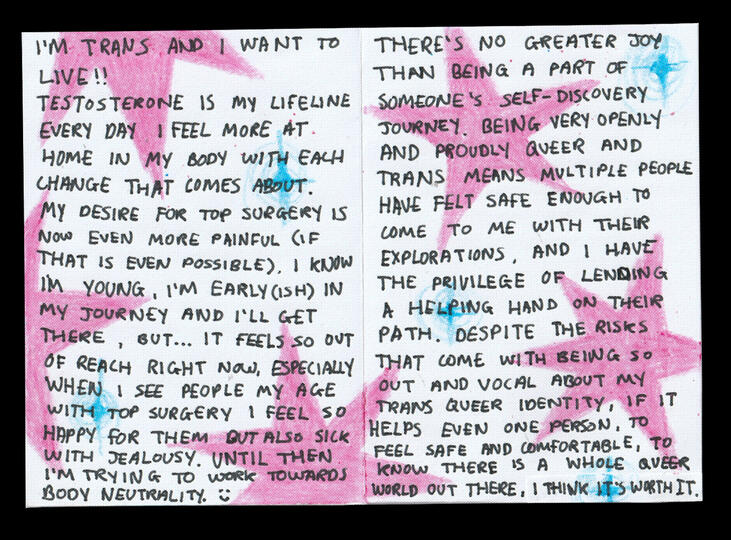 I'M TRANS AND I WANT TO
LIVE!!
TESTOSTERONE IS MY LIFELINE
EVERY DAY I FEEL MORE AT
HOME IN MY BODY WITH EACH
CHANGE THAT COMES ABOUT.
MY DESIRE FOR TOP SURGERY IS
NOW EVEN MORE PAINFUL (IF
THAT IS EVEN POSSIBLE). I KNOW
I'M YOUNG, I'M EARLY(ISH) IN
MY JOURNEY AND I'LL GET
THERE, BUT... IT FEELS SO OUT
OF REACH RIGHT NOW, ESPECIALLY
WHEN I SEE PEOPLE MY AGE
WITH TOP SURGERY I FEEL SO
HAPPY FOR THEM BUT ALSO SICK
WITH JEALOUSY. UNTIL THEN
I'M TRYING TO WORK TOWARDS
BODY NEUTRALITY. :)
THERE'S NO GREATER JOY
THAN BEING A PART OF
SOMEONE'S SELF-DISCOVERY
JOURNEY. BEING VERY OPENLY
AND PROUDLY QUEER AND
TRANS MEANS MULTIPLE PEOPLE
HAVE FELT SAFE ENOUGH TO
COME TO ME WITH THEIR
EXPLORATIONS, AND I HAVE
THE PRIVILEGE OF LENDING
A HELPING HAND ON THEIR
PATH. DESPITE THE RISKS
THAT COME WITH BEING SO
OUT AND VOCAL ABOUT MY
TRANS QUEER IDENTITY, IF IT
HELPS EVEN ONE PERSON, TO
FEEL SAFE AND COMFORTABLE, TO
KNOW THERE IS A WHOLE QUEER
WORLD OUT THERE, I THINK IT'S WORTH IT.